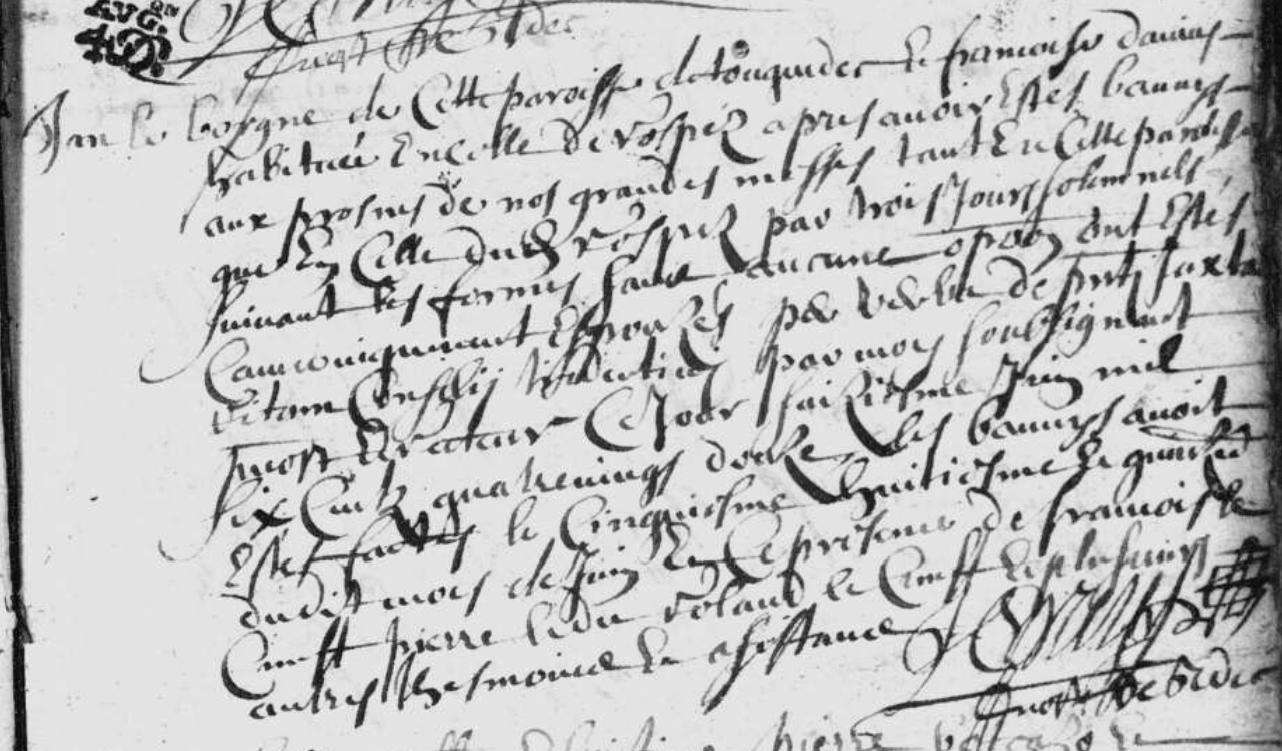 AVG.
4.D.
Jan le borgne de Cette paroisse de touquedec & francoise dauias
habituée En celle de Rospez apres auoir Estés bannys
aux prosnes de nos grandes messes tant En Cette paroisse
que En Celle dud Rospez par trois Jours solemnels
suiuant les formes sans aucune opoon ont Estés
Canoniquement Espouzés per verba de pnti Juxta
ritum Conslij tridentini par moy soubsignant
Curateur Ce Jour saiziesme Juin mil
six Cents quatrevingts douze, les bannys auoit
Estes faictes le Cinquiesme huitiesme &
dudit mois de Juin En presence de francois le
Cunff pierre Roland le Cunff & plusieurs
autres thesmoins En assistance